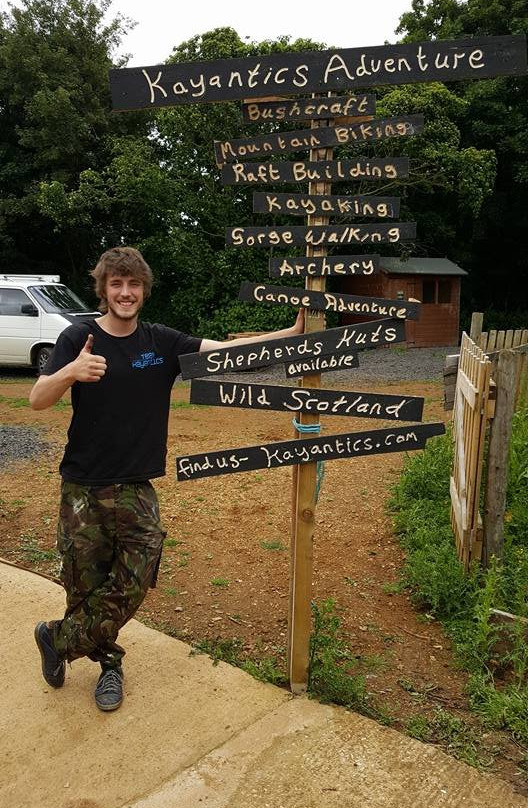 Kayantics Adventure
Bushcraft
Mountain Biking
Raft Building
Kayaking
Gorge Walking
Archery
Canoe Adventure
Shepherds Huts
available
Wild Scotland
find us- Kayantics.com
TEAM
KAYANTICS